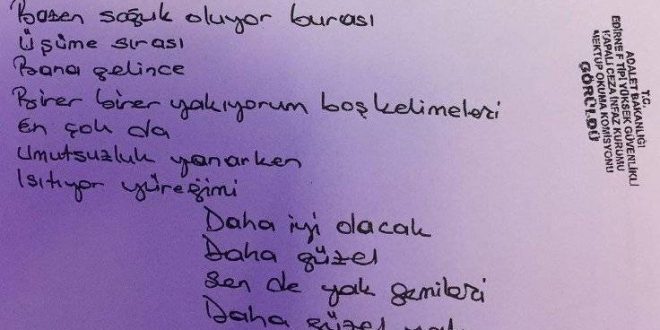 Bazen soğuk oluyor burası
Üşüme sırası
Bana gelince
Birer birer yakıyorum boş kelimeleri
En çok da
Umutsuzluk yanarken
Isıtıyor yüreğimi
Daha iyi olacak
Daha güzel
Sen de yak gemileri
Daha güzel
T.C.
ADALET BAKANLIĞI
EDİRNE F TİPİ YÜKSEK GÜVENLİKLİ
KAPALI CEZA İNFAZ KURUMU
MEKTUP OKUMA KOMİSYONU
GÖRÜLDÜ